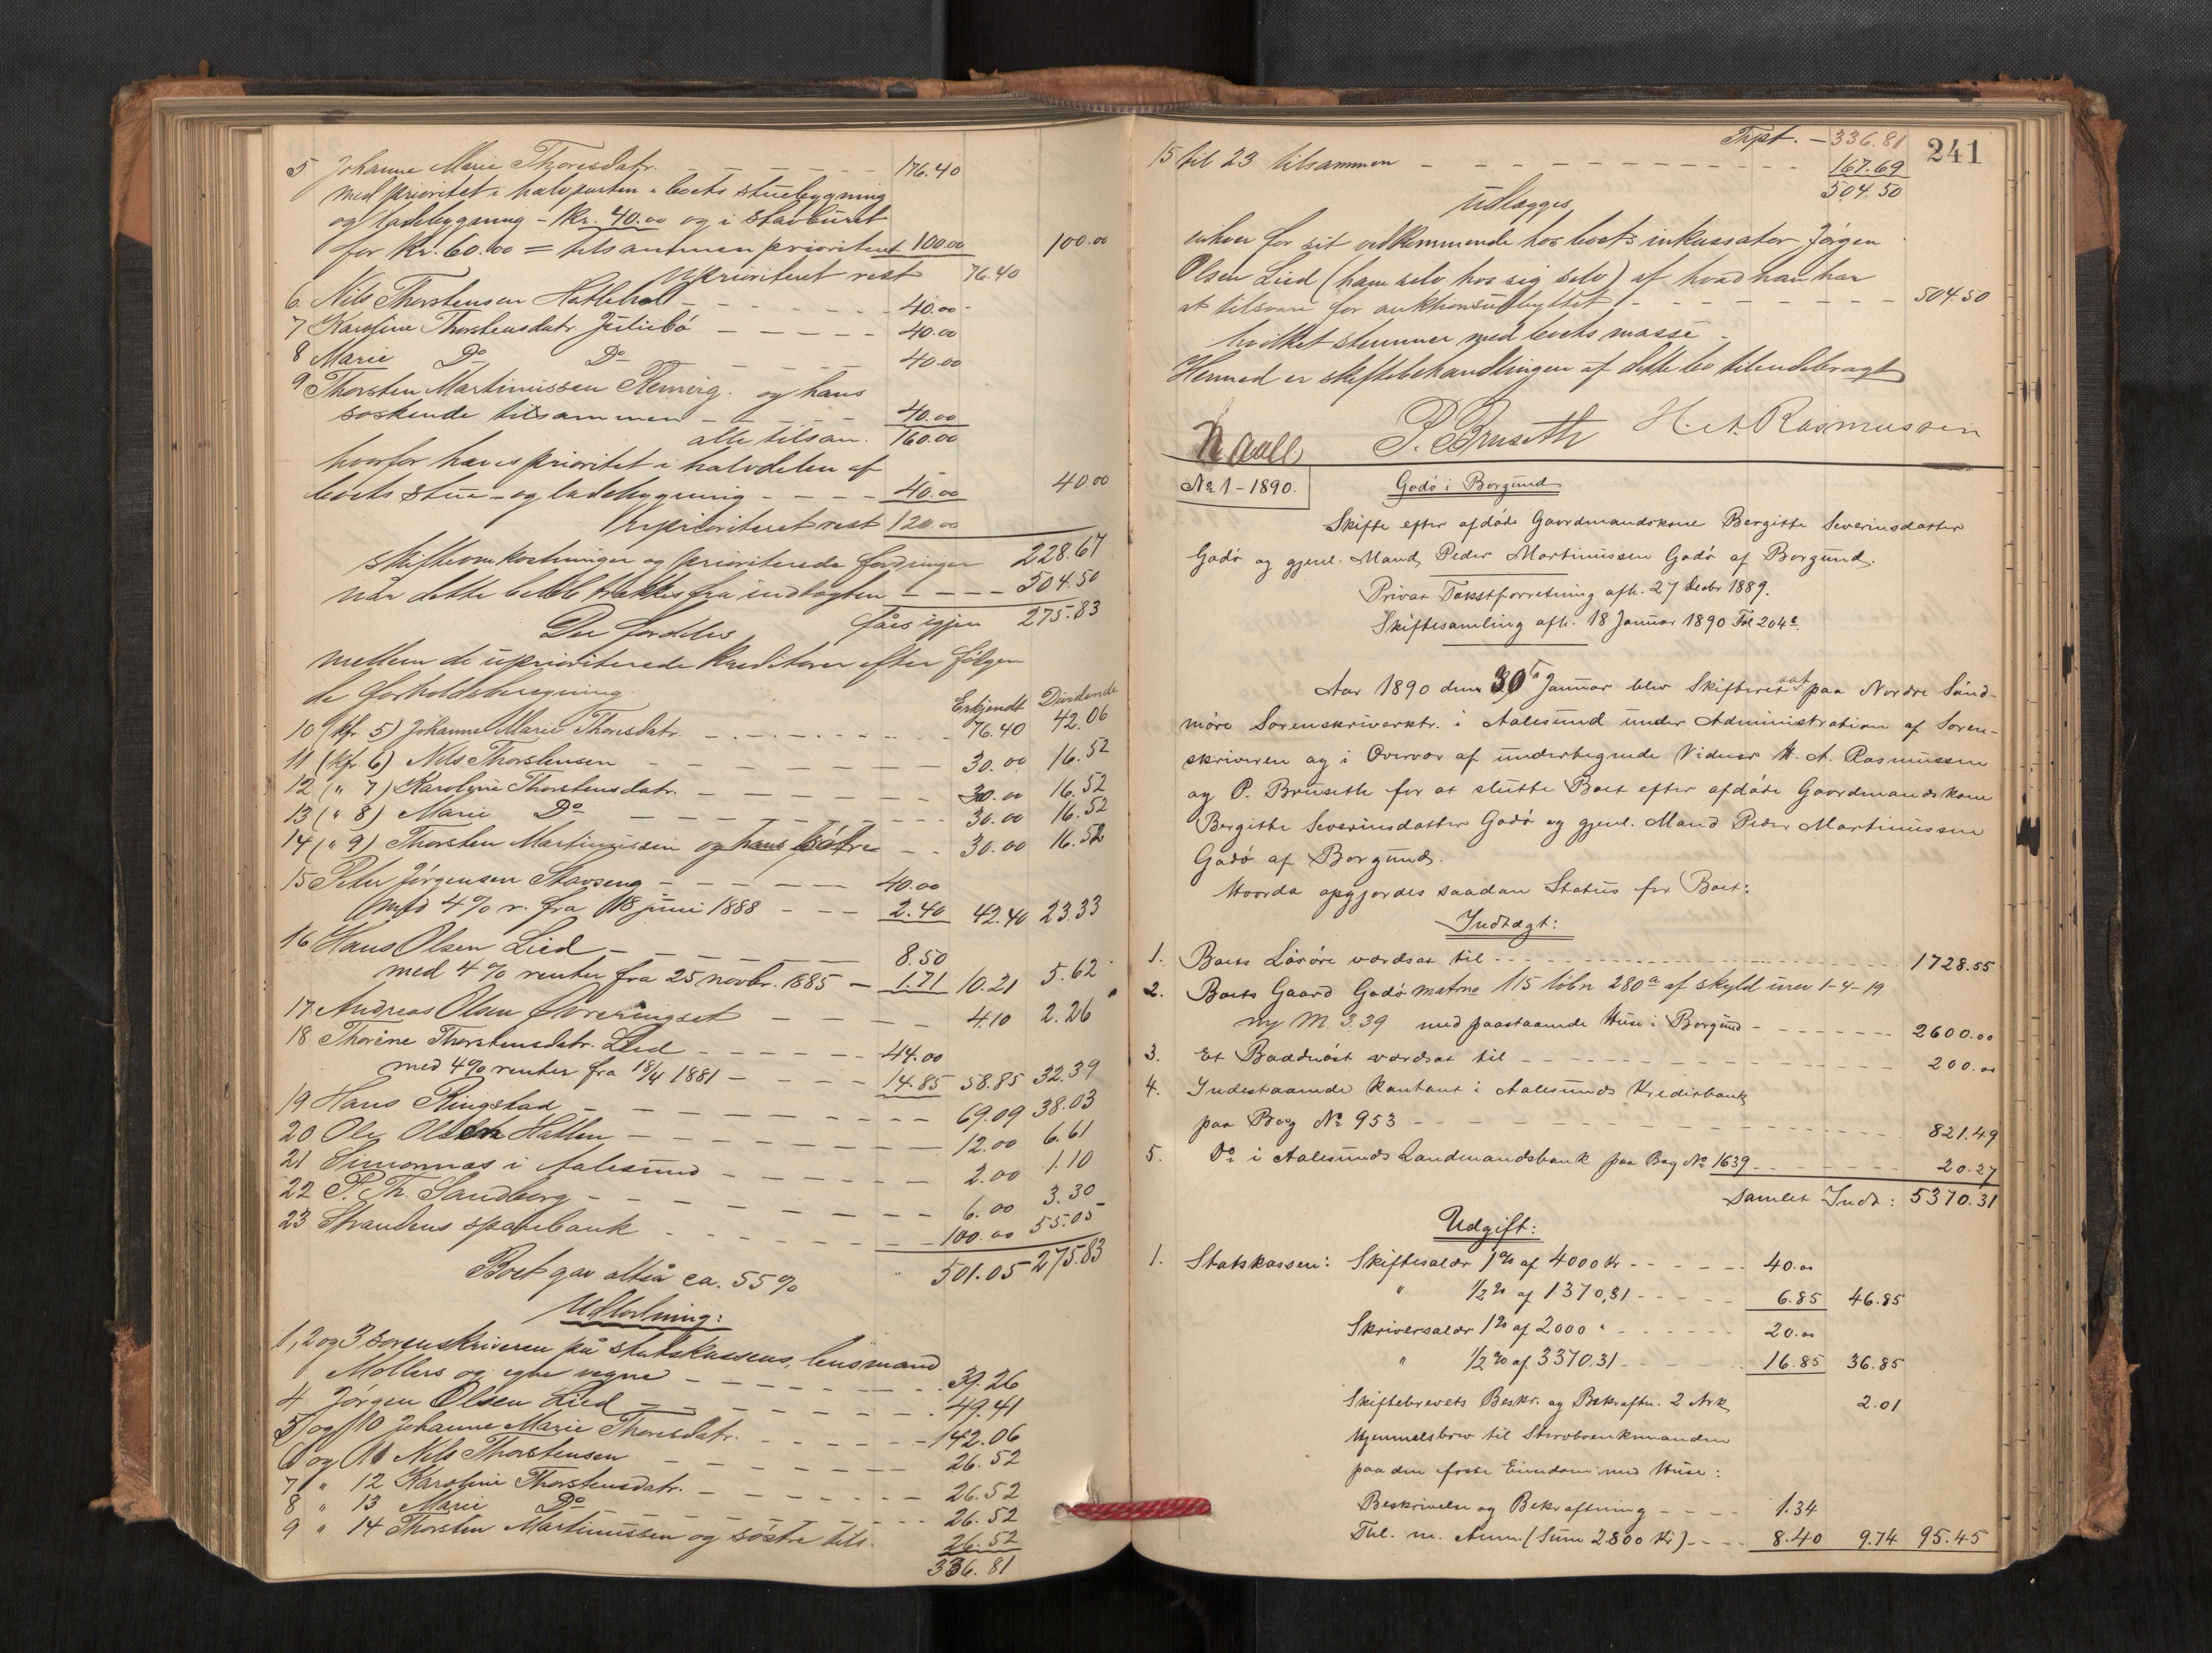 5 Johanne Marie Thoresdatr. — — — — — 176.40
med prioritet i halvparten i boets stuebygning
og ladebygning - Kr. 40.00 og i stavburet
for Kr. 60.00 = tilsammen prioriteret 100.00 100.00
Uprioriteret rest 76.40
6. Nils Thorstensen Hatlehol — — — — 40.00
7 Karoline Thorstensdatr. Juliebö — — — — 40.00
8 Marie Do Do — — — — 40.00
9 Thorsten Martinussen Flemvig. og hans
söskende tilsammen — — — — 40.00
alle tilsam. 160.00
hvorfor haves prioritet i halvdelen af
boets stue- og ladebygning — — — — 40.00 40.00
Uprioriteret rest 120.00
Skifteomkostninger og prioriterede fordringer 228.67
når dette belöb trækkes fra indtægten — — — 504.50
fåes igjen 275.83
Der fordeles
mellem de uprioriterede kreditorer efter følgen
de forholdsberegning.
Erkjendt Dividende
10 (kfr 5) Johanne Marie Thoresdatr. — — — — 76.40 42.06
11 (kfr. 6) Nils Thorstensen — — — — 30.00 16.52
12 (" 7) Karoline Thorstensdatr. — — — — 30.00 16.52
13 (" 8) Marie Do — — — — 30.00 16.52
14 (" 9) Thorsten Martinussen og hans söstre — — 30.00 16.52
15 Peter Jörgensen Stavseng — — — — 40.00
med 4% r. fra 18 juni 1888 — — — 2.40 42.40 23.33
16 Hans Olsen Lied — — — — 8.50
med 4% renter fra 25 novbr. 1885 — 1.71 10.21 5.62
17 Andreas Olsen — — — — 4.10 2.26
18 Thorine Thorstensdatr. Lied — — — — 44.00
med 4% renter fra 18/4 1881 — — — — 14.85 58.85 32.39
19 Hans Ringstad — — — — 69.09 38.03
20 Ole Olsen Hatlen — — — — 12.00 6.61
21 Simonnæs i Aalesund — — — — 2.00 1.10
22 P. Th. Sandborg — — — — 6.00 3.30
23 Strandens sparebank — — — — 100.00 55.05
501.05 275.83
Boet gav altså ca. 55%
Udlodning:
1, 2 og 3 sorenskriveren på statskassens, lensmand
Møllers og egne vegne — — — — 39.26
4 Jörgen Olsen Lied — — — — 49.41
5 og 10 Johanne Marie Thoresdatr. — — — — 142.06
6 og 11 Nils Thorstensen — — — — 26.52
7 " 12 Karoline Thorstensdatr. — — — — 26.52
8 " 13 Marie Do — — — — 26.52
9 " 14 Thorsten Martinussen og söstre tils. 26.52
336.81
241
Trspt. — 336.81
15 til 23 tilsammen — — — — 167.69
504.50
Udlægges
enhver for sit vedkommende hos boets inkassator Jörgen
Olsen Lied (ham selv hos sig selv) af hvad han har
at tilsvare for auktionsudbyttet — — — — 504.50
hvilket stemmer med boets masse.
Hermed er skiftebehandlingen af dette bo tilendebragt
Aall P. Bruseth H. A. Rasmussen
No 1 - 1890.
Godö i Borgund
Skifte efter afdöde Gaardmandskone Bergitte Severinsdatter
Godö og gjenl. Mand Peder Martinussen Godö af Borgund.
Privat Takstforretning afh. 27 Decbr 1889.
Skiftesamling afh. 18 Januar 1890 Fol 204a.
Aar 1890 den 30te Januar blev Skifteret sat paa Nordre Sönd-
möre Sorenskriverktr. i Aalesund under Administration af Soren-
skriveren og i Overvær af undertegnede Vidner H. A. Rasmussen
og P. Bruseth for at slutte Boet efter afdöde Gaardmandskone
Bergitte Severinsdatter Godö og gjenl. Mand Peder Martinussen
Godö af Borgund.
Hvorda opgjordes saadan Status for Boet:
Indtægt:
1. Boets Lösöre værdsat til — — — — 1728.55
2. Boets Gaard Godö matrno 115 löbn. 280a af skyld urev 1-4-19
ny M. 3.39 med paastaaende Huse i Borgund — — — — 2600.00
3. Et Baadnöst værdsat til — — — — 200.00
4. Indestaaende kontant i Aalesunds Kreditbank
paa Bog No 953 — — — — 821.49
5. Do i Aalesunds Landmandsbank paa Bog No 1639 — — — — 20.27
Samlet Indt: 5370.31
Udgift:
1. Statskassen: Skiftesalær 1% af 4000 Kr — — — 40.00
" 1/2% af 1370,31 — — — 6.85 46.85
Skriversalær 1% af 2000 " — — — 20.00
" 1/2% af 3370.31 — — — 16.85 36.85
Skiftebrevets Beskr. og Bekræftn. 2 Ark 2.01
Hjemmelsbrev til Stervboenkemanden
paa den faste Eiendom med Huse:
Beskrivelse og Bekræftning — — — 1.34
Thl. m. Anm. (Sum 2800 Kr) — — — 8.40 9.74 95.45